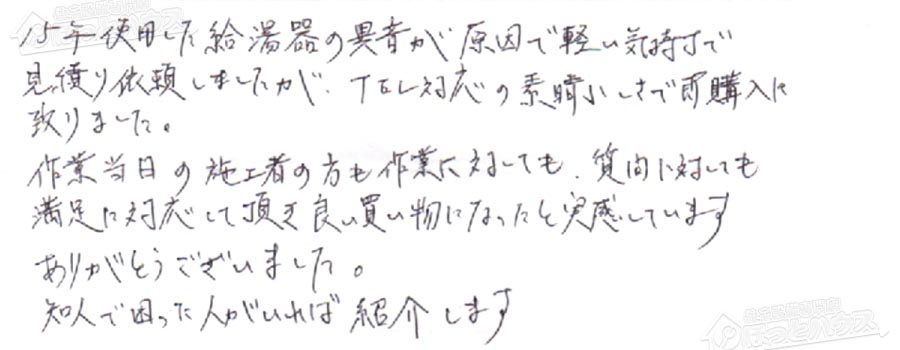 15年使用した給湯器の異音が原因で軽い気持ちで
見積り依頼しましたが、TEL対応の素晴しさで即購入に
致りました。
作業当日の施工者の方も作業に対しても、質問に対しても
満足に対応して頂き良い買い物になったと実感しています
ありがとうございました。
知人で困った人がいれば紹介します
ほっとハウス